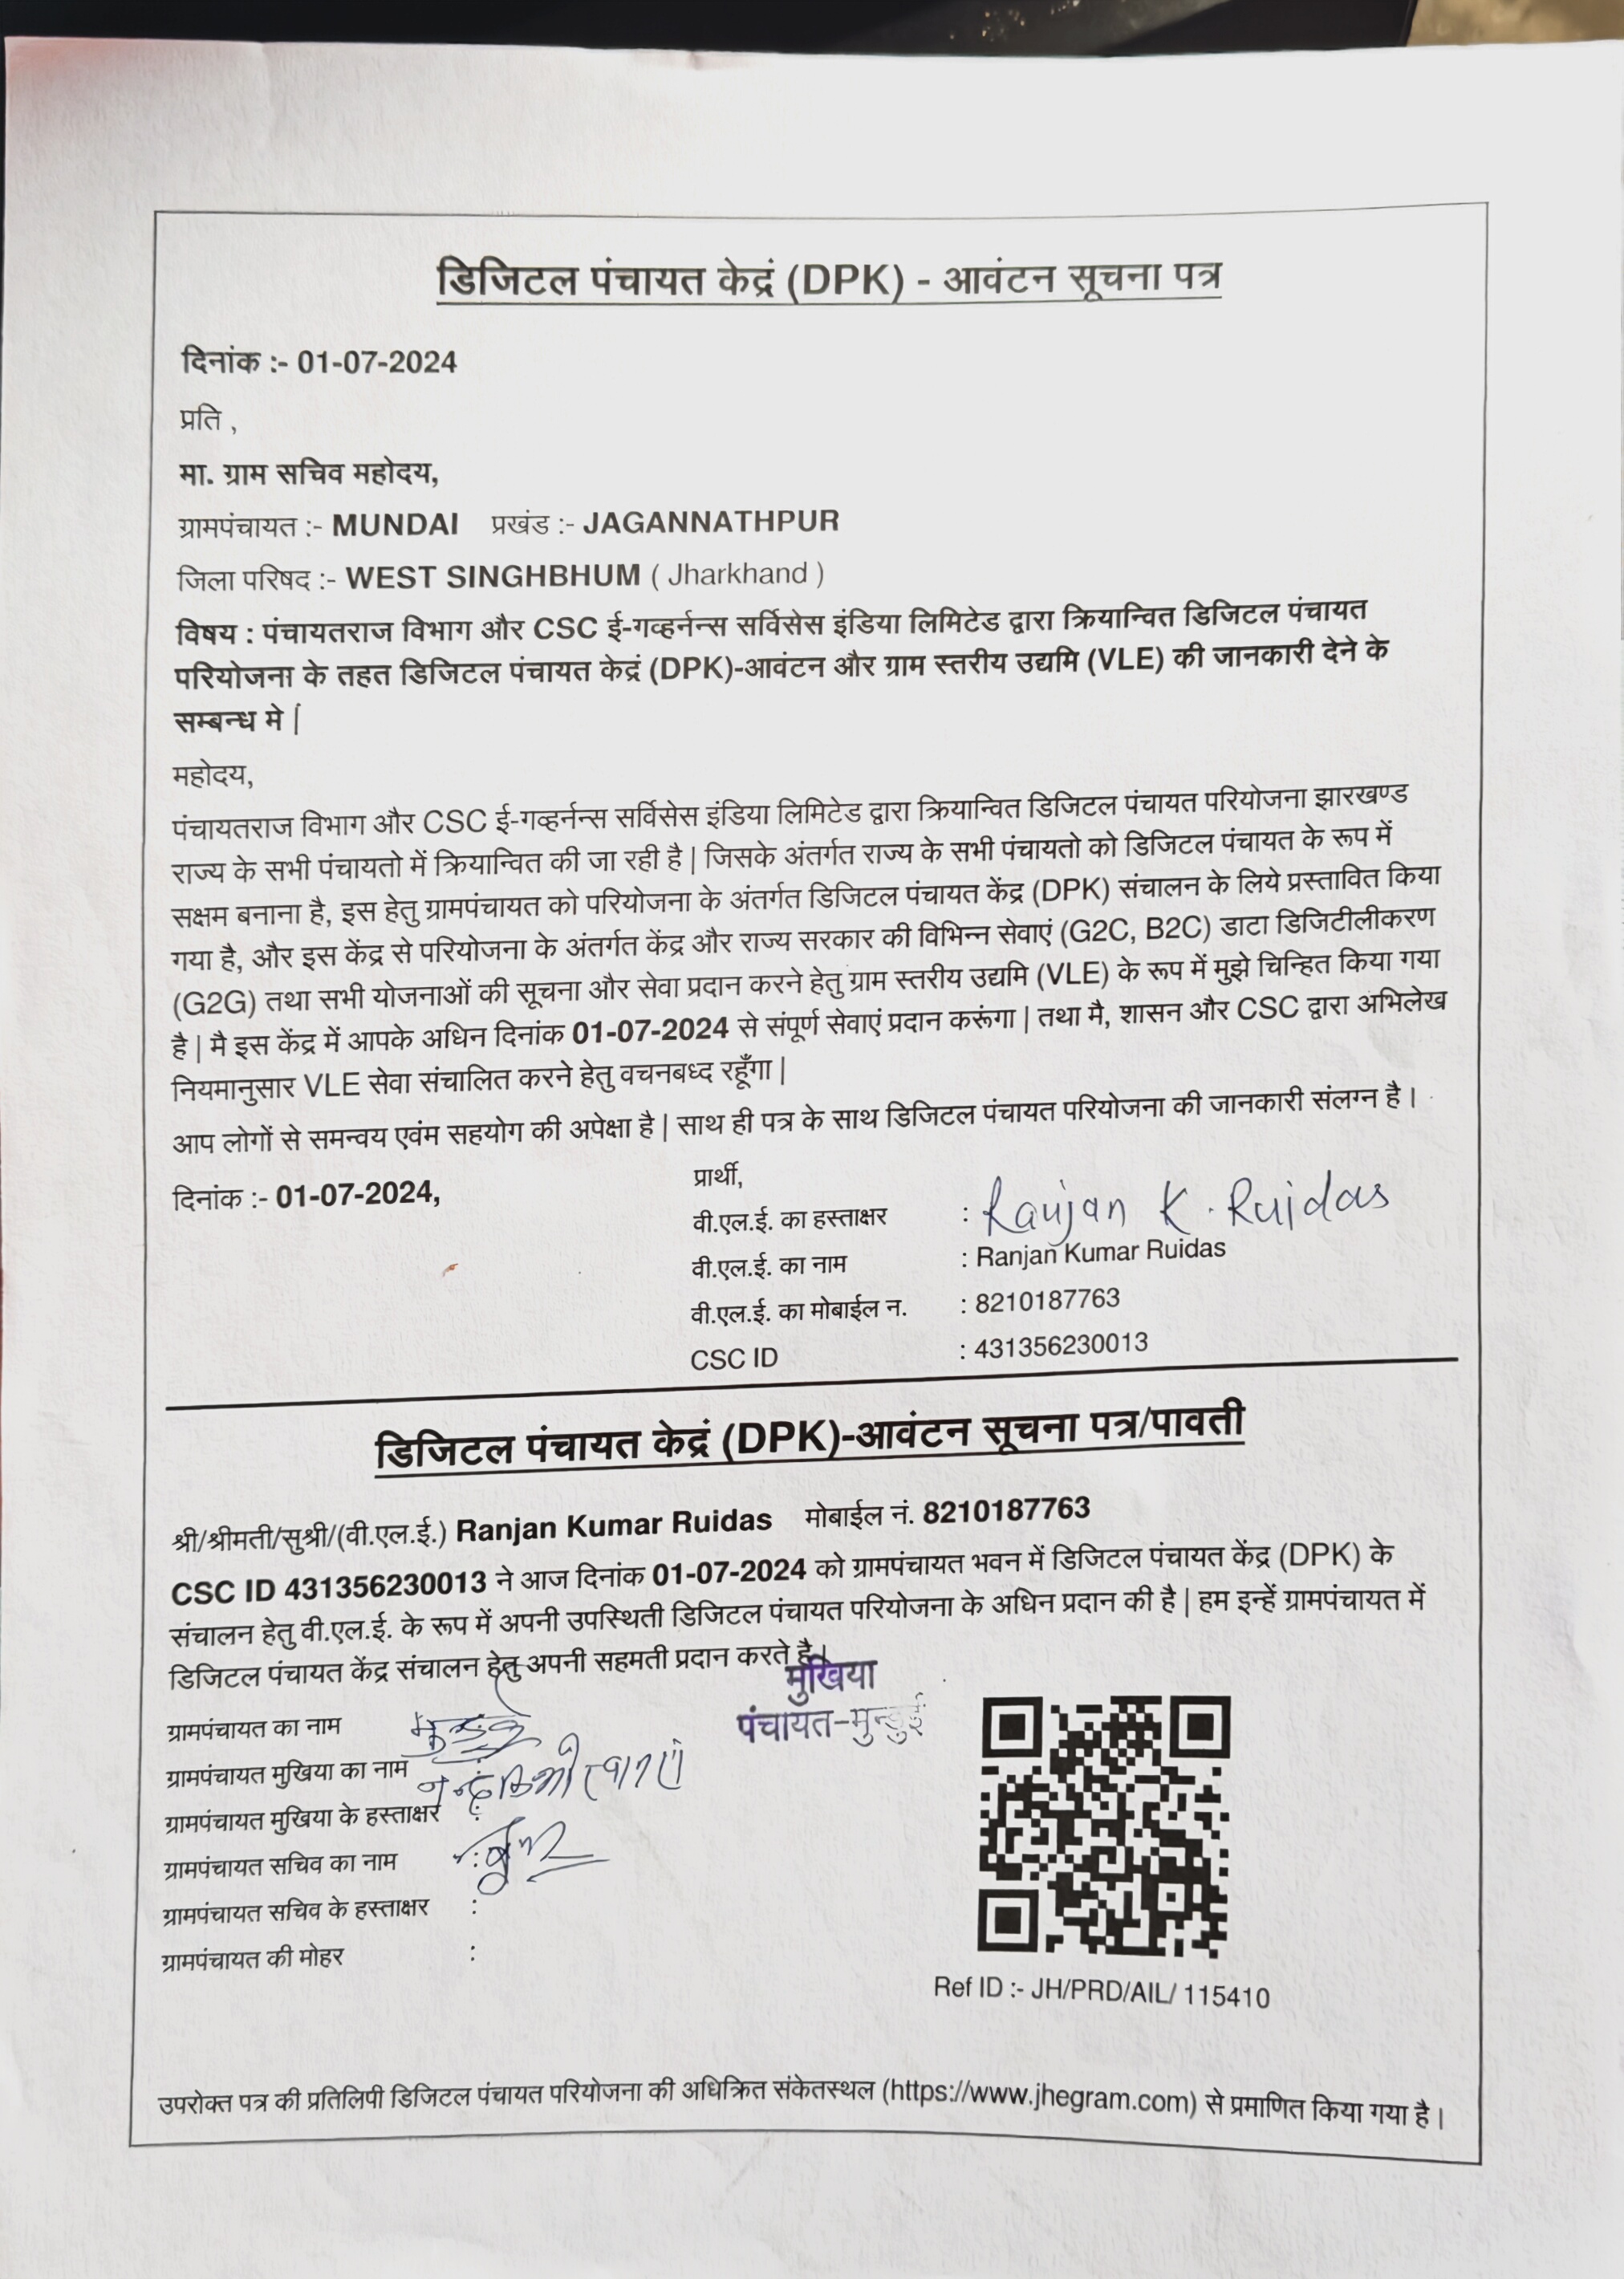 डिजिटल पंचायत केद्रं (DPK) - आवंटन सूचना पत्र
दिनांक :- 01-07-2024
प्रति ,
मा. ग्राम सचिव महोदय,
ग्रामपंचायत :- MUNDAI प्रखंड :- JAGANNATHPUR
जिला परिषद :- WEST SINGHBHUM ( Jharkhand )
विषय : पंचायतराज विभाग और CSC ई-गव्हर्नन्स सर्विसेस इंडिया लिमिटेड द्वारा क्रियान्वित डिजिटल पंचायत
परियोजना के तहत डिजिटल पंचायत केद्रं (DPK)-आवंटन और ग्राम स्तरीय उद्यमि (VLE) की जानकारी देने के
सम्बन्ध मे |
महोदय,
पंचायतराज विभाग और CSC ई-गव्हर्नन्स सर्विसेस इंडिया लिमिटेड द्वारा क्रियान्वित डिजिटल पंचायत परियोजना झारखण्ड
राज्य के सभी पंचायतो में क्रियान्वित की जा रही है | जिसके अंतर्गत राज्य के सभी पंचायतो को डिजिटल पंचायत के रूप में
सक्षम बनाना है, इस हेतु ग्रामपंचायत को परियोजना के अंतर्गत डिजिटल पंचायत केंद्र (DPK) संचालन के लिये प्रस्तावित किया
गया है, और इस केंद्र से परियोजना के अंतर्गत केंद्र और राज्य सरकार की विभिन्न सेवाएं (G2C, B2C) डाटा डिजिटीलीकरण
(G2G) तथा सभी योजनाओं की सूचना और सेवा प्रदान करने हेतु ग्राम स्तरीय उद्यमि (VLE) के रूप में मुझे चिन्हित किया गया
है | मै इस केंद्र में आपके अधिन दिनांक 01-07-2024 से संपूर्ण सेवाएं प्रदान करूंगा | तथा मै, शासन और CSC द्वारा अभिलेख
नियमानुसार VLE सेवा संचालित करने हेतु वचनबध्द रहूँगा |
आप लोगों से समन्वय एवंम सहयोग की अपेक्षा है | साथ ही पत्र के साथ डिजिटल पंचायत परियोजना की जानकारी संलग्न है ।
दिनांक :- 01-07-2024,
प्रार्थी,
वी.एल.ई. का हस्ताक्षर : Ranjan K. Ruidas
वी.एल.ई. का नाम : Ranjan Kumar Ruidas
वी.एल.ई. का मोबाईल न. : 8210187763
CSC ID : 431356230013
डिजिटल पंचायत केद्रं (DPK)-आवंटन सूचना पत्र/पावती
श्री/श्रीमती/सुश्री/(वी.एल.ई.) Ranjan Kumar Ruidas मोबाईल नं. 8210187763
CSC ID 431356230013 ने आज दिनांक 01-07-2024 को ग्रामपंचायत भवन में डिजिटल पंचायत केंद्र (DPK) के
संचालन हेतु वी.एल.ई. के रूप में अपनी उपस्थिती डिजिटल पंचायत परियोजना के अधिन प्रदान की है | हम इन्हें ग्रामपंचायत में
डिजिटल पंचायत केंद्र संचालन हेतु अपनी सहमती प्रदान करते है।
मुखिया
पंचायत-मुन्डुई
ग्रामपंचायत का नाम
ग्रामपंचायत मुखिया का नाम
ग्रामपंचायत मुखिया के हस्ताक्षर :
ग्रामपंचायत सचिव का नाम :
ग्रामपंचायत सचिव के हस्ताक्षर :
ग्रामपंचायत की मोहर :
Ref ID :- JH/PRD/AIL/ 115410
उपरोक्त पत्र की प्रतिलिपी डिजिटल पंचायत परियोजना की अधिक्रित संकेतस्थल (https://www.jhegram.com) से प्रमाणित किया गया है ।